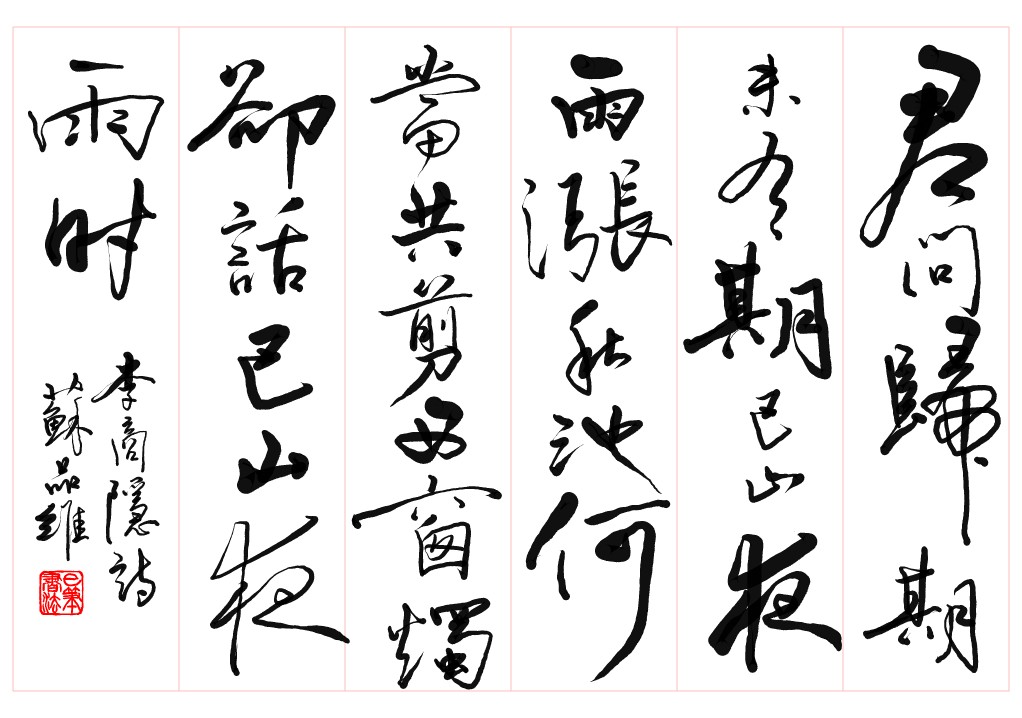 君問歸期
未有期巴山夜
雨漲秋池何
當共剪西窗燭
卻話巴山夜
雨时
李商隱詩
蘇品維